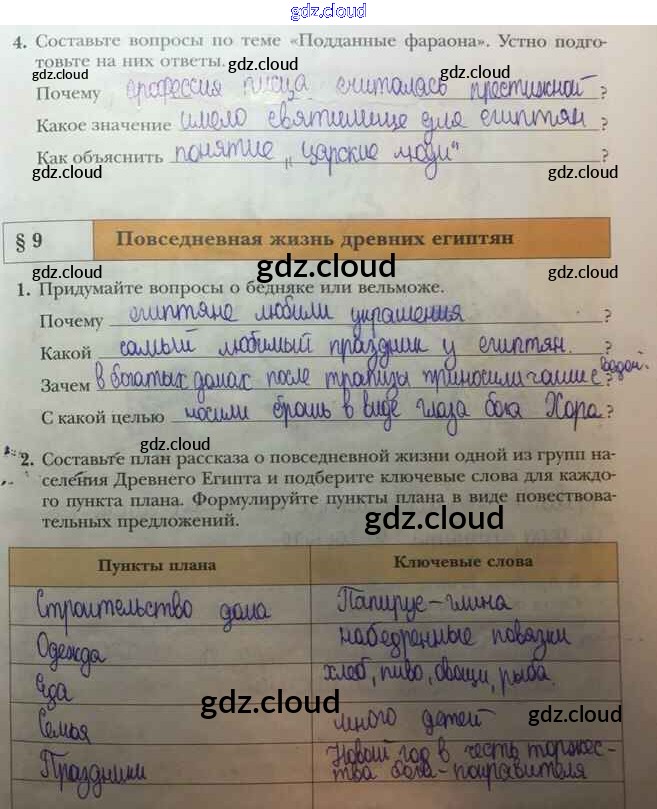 gdz.cloud
4. Составьте вопросы по теме «Подданные фараона». Устно подго-
товьте на них ответы.
gdz.cloud gdz.cloud gdz.cloud
Почему профессия писца считалась престижной ?
Какое значение имело святилище для египтян ?
gdz.cloud gdz.cloud gdz.cloud
Как объяснить понятие „царские люди" ?
gdz.cloud gdz.cloud
§ 9 Повседневная жизнь древних египтян
gdz.cloud
gdz.cloud
1. Придумайте вопросы о бедняке или вельможе.
Почему египтяне любили украшения ?
Какой самый любимый праздник у египтян. ?
Зачем в богатых домах после трапезы приносили чаши с водой. ?
С какой целью носили брошь в виде глаза бога Хора ?
gdz.cloud
2. Составьте план рассказа о повседневной жизни одной из групп на-
селения Древнего Египта и подберите ключевые слова для каждо-
го пункта плана. Формулируйте пункты плана в виде повествова-
тельных предложений.
gdz.cloud
Пункты плана Ключевые слова
Строительство дома Папирус-глина
Одежда набедренные повязки
Еда хлеб, пиво, овощи, рыба.
gdz.cloud
Семья много детей
gdz.cloud gdz.cloud
Праздники Новый год в честь торжес-
тва бога-покровителя